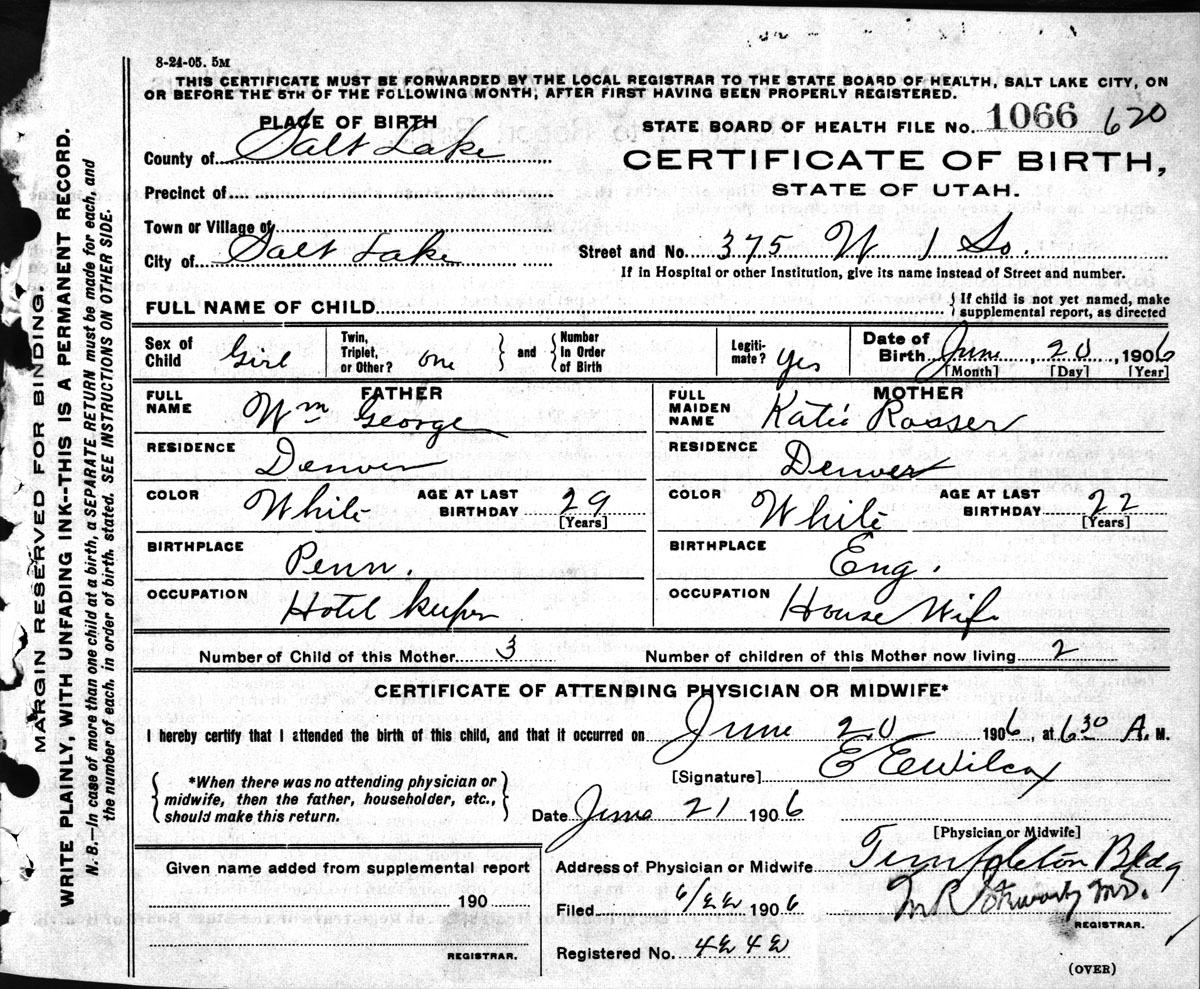 8-24-05. 5M
THIS CERTIFICATE MUST BE FORWARDED BY THE LOCAL REGISTRAR TO THE STATE BOARD OF HEALTH, SALT LAKE CITY, ON
OR BEFORE THE 5TH OF THE FOLLOWING MONTH, AFTER FIRST HAVING BEEN PROPERLY REGISTERED.
PLACE OF BIRTH
STATE BOARD OF HEALTH FILE NO. 1066 620
County of Salt Lake
CERTIFICATE OF BIRTH,
STATE OF UTAH.
Precinct of
Town or Village of
City of Salt Lake
Street and No. 375 W 1 So.
If in Hospital or other Institution, give its name instead of Street and number.
FULL NAME OF CHILD
{ If child is not yet named, make
supplemental report, as directed
Sex of Child Girl
Twin, Triplet, or Other? one
and
Number In Order of Birth
Legiti-mate? yes
Date of Birth June 20, 1906
[Month] [Day] [Year]
FATHER
FULL NAME Wm George
RESIDENCE Denver
COLOR White AGE AT LAST BIRTHDAY 29
[Years]
BIRTHPLACE Penn.
OCCUPATION Hotel keeper
MOTHER
FULL MAIDEN NAME Katie Rosser
RESIDENCE Denver
COLOR White AGE AT LAST BIRTHDAY 22
[Years]
BIRTHPLACE Eng.
OCCUPATION House Wife
Number of Child of this Mother 3
Number of children of this Mother now living 2
CERTIFICATE OF ATTENDING PHYSICIAN OR MIDWIFE*
I hereby certify that I attended the birth of this child, and that it occurred on June 20 1906, at 6 30 A. M.
*When there was no attending physician or
midwife, then the father, householder, etc.,
should make this return.
[Signature] E E Wilcox
Date June 21 1906
[Physician or Midwife]
Given name added from supplemental report
190
REGISTRAR.
Address of Physician or Midwife Templeton Bldg
Filed 6/22 1906
M R Stewart MD.
REGISTRAR.
Registered No. 4242
(OVER)
MARGIN RESERVED FOR BINDING.
WRITE PLAINLY, WITH UNFADING INK--THIS IS A PERMANENT RECORD.
N. B.—In case of more than one child at a birth, a SEPARATE RETURN must be made for each, and
the number of each, in order of birth, stated. SEE INSTRUCTIONS ON OTHER SIDE.